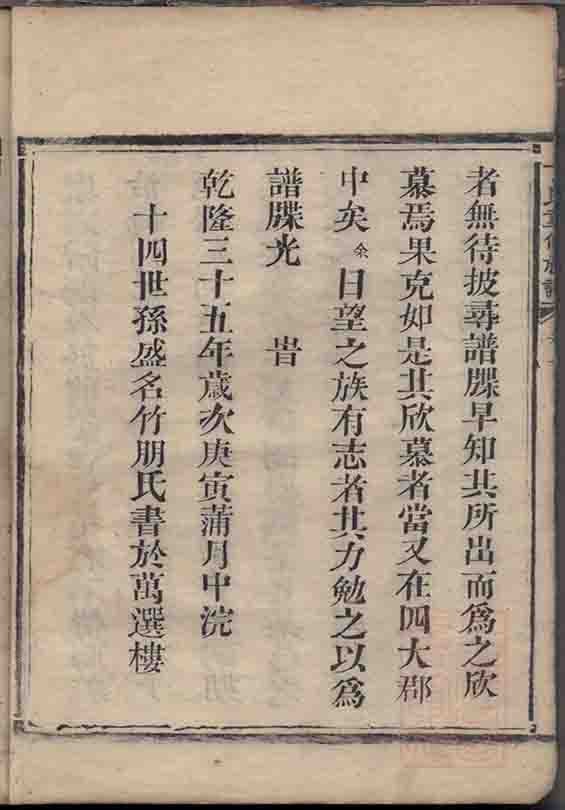 者無待披尋譜牒早知其所出而爲之欣
慕焉果克如是其欣慕者當又在四大郡
中矣余日望之族有志者其力勉之以爲
譜牒光　旹
乾隆三十五年歲次庚寅蒲月中浣
十四世孫盛名竹朋氏書於萬選樓